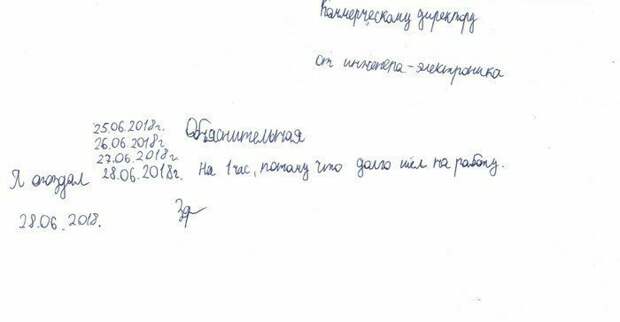 Коммерческому директору
от инженера-электроника
Объяснительная
25.06.2018г.
26.06.2018г.
27.06.2018г.
Я опоздал 28.06.2018г. На 1 час, потому что долго шёл на работу.
28.06.2018.